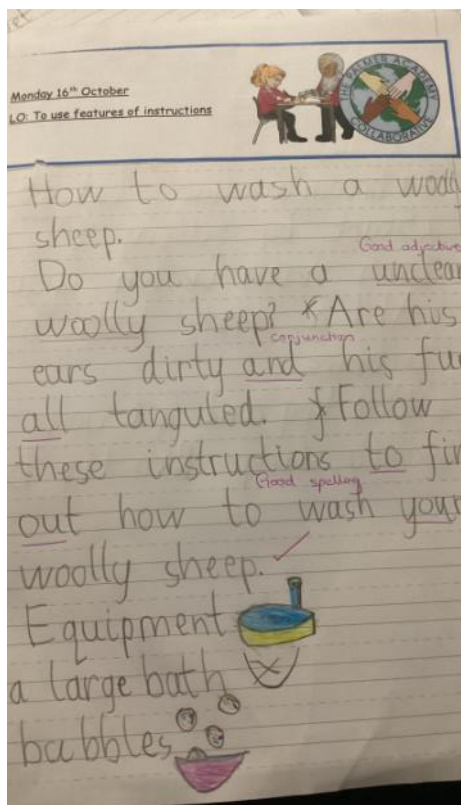 Monday 16th October
LO: To use features of instructions
THE PALMER ACADEMY
COLLABORATIVE
How to wash a woolly
sheep.
Good adjective
Do you have a unclean
woolly sheep? *Are his
conjunction
ears dirty and his fur
all tanguled. *Follow
these instructions to fin
Good spelling
out how to wash your
woolly sheep. ✓
Equipment
a large bath
bubbles